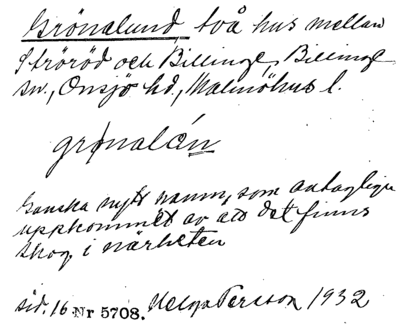 Grönalund två hus mellan
Ströröd och Billinge, Billinge
sn., Onsjö hd., Malmöhus l.
grønalón
Ganska nytt namn, som antagligen
uppkommit av att det finns
skog i närheten
sid. 16 Nr 5708. Helga Persson 1932